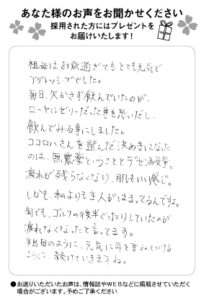 あなた様のお声をお聞かせください
採用された方にはプレゼントを
お届けいたします!
祖母は80歳過ぎてもとても元気で
アグレッシブでした。
毎日、欠かさず飲んでいたのが、
ローヤルゼリーだった事を思いだし、
飲んでみる事にしました。
を選んだ決めきてになった
のは、無農薬ということと
疲れが残らなくなり、肌もいい感じ。
しかも、私よりも主人がはまってるんですよ。
何でも、ゴルフの後半ぐったりしていたのが
疲れなくなったと言ってます。
祖母のように、元気に年を重ねて
ように、続けていきますね。
●お送りいただいたお声は、情報誌やWEBなどに掲載させていただく
場合がございます。予めご了承ください